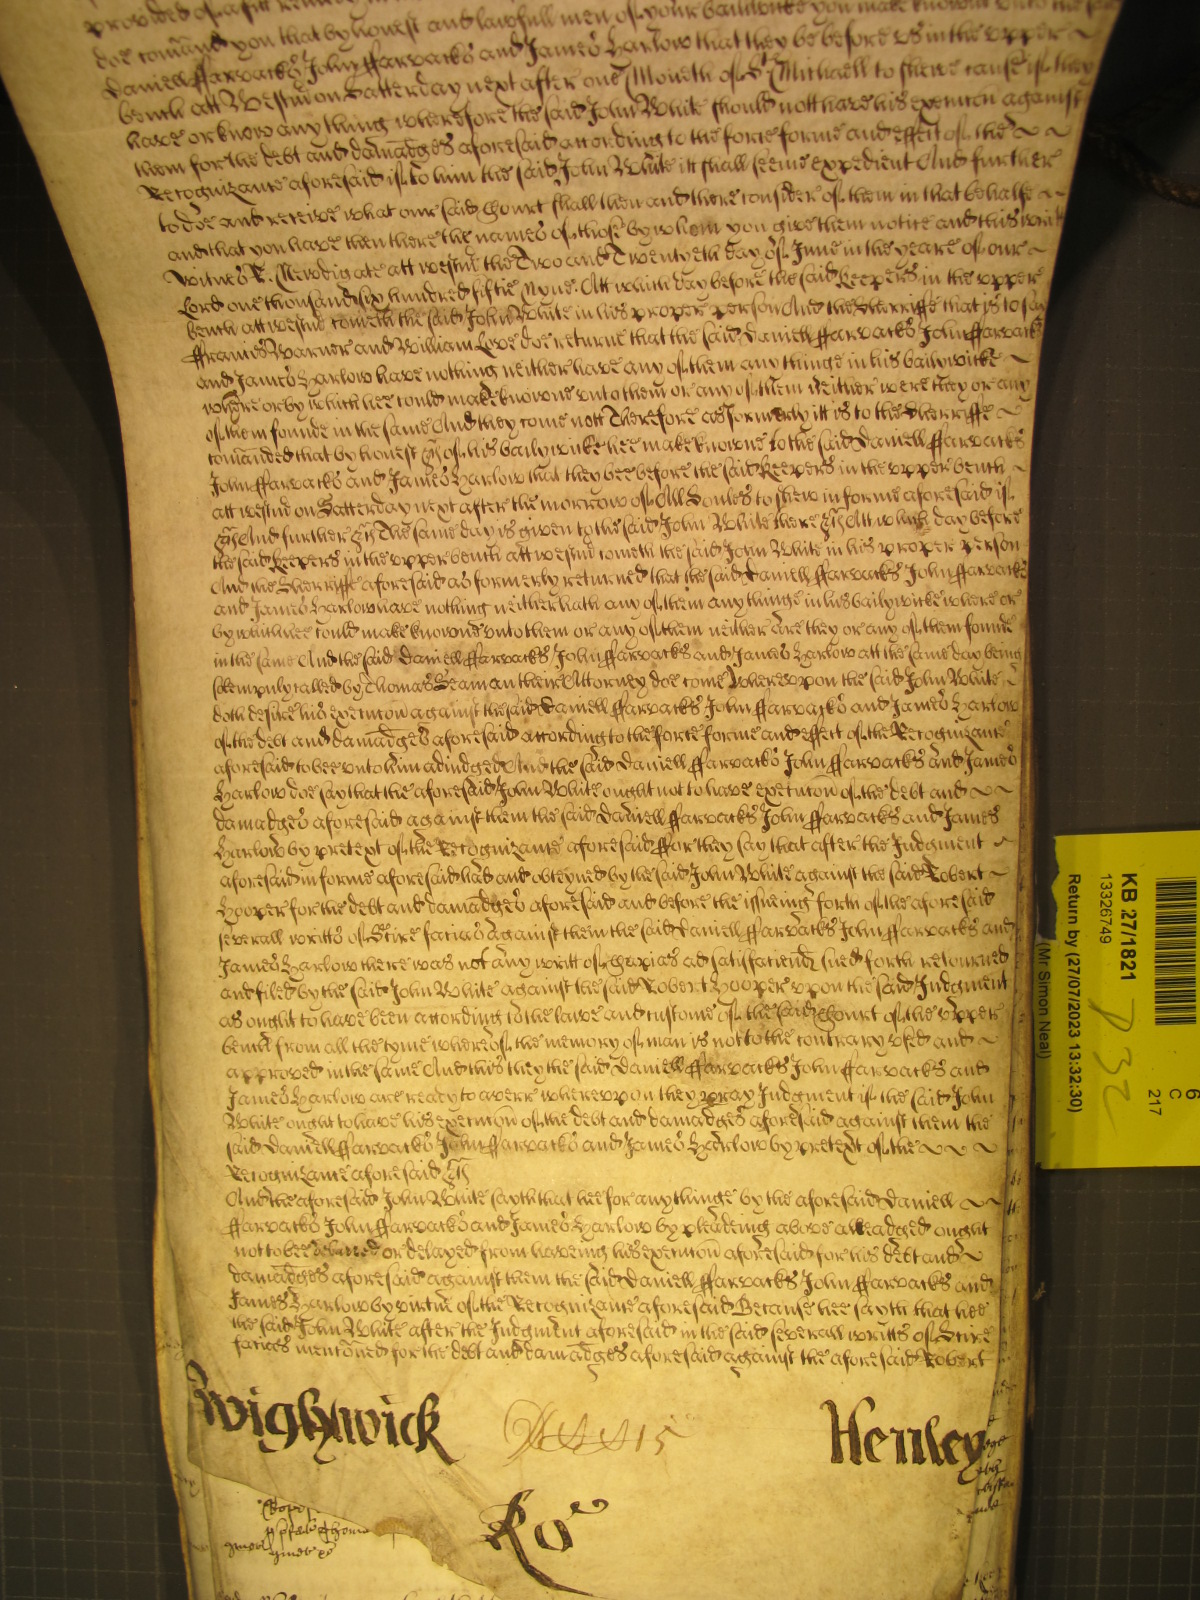 doe comand you that by honest and lawfull men of your bailiwicke you make knowne unto the said
Daniell ffarvacks John ffarvacks and James Harlow that they be before us in the upper
bench att Westmr on Satterday next after one Moneth of St Michaell to shewe cause if they
have or know any thing wherefore the said John White should nott have his execucon against
them for the debt and damadges aforesaid according to the force forme and effect of the
Recognizance aforesaid if to him the said John White itt shall seeme expedient And further
to doe and receive what our said Court shall then and there consider of them in that behalfe
and that you have then there the names of those by whom you give them notice and this writt
Witnes R. Newdigate att westmr the Two and Twentyeth day of June in the yeare of our
Lord one thousand six hundred fiftie Nyne. Att which day before the said keepers in the upper
bench att westmr cometh the said John White in his proper person And the Sherriffe that is to say
ffrancis Warner and William Love doe returne that the said Daniell ffarvacks John ffarvacks
and James Harlow have nothing neither have any of them any thinge in his bailywicke
where or by which hee could make knowne unto them or any of them neither were they or any
of them founde in the same And they come nott Therefore as formerly itt is to the Sherriffe
comanded that by honest &c of his bailywike hee make knowne to the said Daniell ffarvacks
John ffarvacks and James Harlow that they bee before the said keepers in the upper bench
att westmr on Satterday next after the morrow of All Soules to shew in forme aforesaid if
&c And further &c The same day is given to the said John White there &c Att which day before
the said keepers in the upper bench att westmr cometh the said John White in his proper person
And the Sherriffe aforesaid as formerly returned that the said Daniell ffarvacks John ffarvacks
and James Harlow have nothing neither hath any of them any thinge in his bailywicke where or
by which hee could make knowne unto them or any of them neither are they or any of them founde
in the same And the said Daniell ffarvacks John ffarvacks and James Harlow att the same day being
solempnly called by Thomas Seaman their Attorney doe come Whereupon the said John White
doth desire his execucon against the said Daniell ffarvacks John ffarvacks and James Harlow
of the debt and damadges aforesaid according to the force forme and effect of the Recognizance
aforesaid to bee unto him adiudged And the said Daniell ffarvacks John ffarvacks and James
Harlow doe say that the aforesaid John White ought not to have execucon of the debt and
damadges aforesaid against them the said Daniell ffarvacks John ffarvacks and James
Harlow by pretext of the Recognizance aforesaid ffor they say that after the Judgment
aforesaid in forme aforesaid had and obteyned by the said John White against the said Robert
Hooper for the debt and damadges aforesaid and before the issueing forth of the aforesaid
severall writts of Scire facias against them the said Daniell ffarvacks John ffarvacks and
James Harlow there was not any writt of Capias ad satisfaciend sued forth retourned
and filed by the said John White against the said Robert Hooper upon the said Judgment
as ought to have been according to the lawe and custome of the said Court of the upper
bench from all the tyme whereof the memory of man is not to the contrary used and
approved in the same And this they the said Daniell ffarvacks John ffarvacks and
James Harlow are ready to averr whereupon they pray Judgment if the said John
White ought to have his execucon of the debt and damadges aforesaid against them the
said Daniell ffarvacks John ffarvacks and James Harlow by pretext of the
Recognizance aforesaid &c
And the aforesaid John White sayth that hee for any thinge by the aforesaid Daniell
ffarvacks John ffarvacks and James Harlow by pleading above alleadged ought
not to bee debarred or delayed from haveing his execucon aforesaid for his debt and
damadges aforesaid against them the said Daniell ffarvacks John ffarvacks and
James Harlow by virtue of the Recognizance aforesaid Because hee sayth that hee
the said John White after the Judgment aforesaid in the said severall writts of Scire
facias mencioned for the debt and damadges aforesaid against the aforesaid Robert
Wightwick 15 Henley
Ro
KB 27/1821
13326749
Return by (27/07/2023 13:32:30)
(Mr Simon Neal)
6
C
217